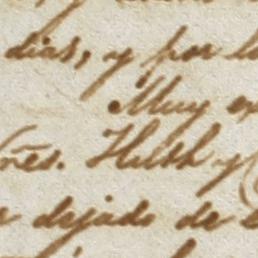 dias, y por l
Muy e
res. Huth y C
dejado de